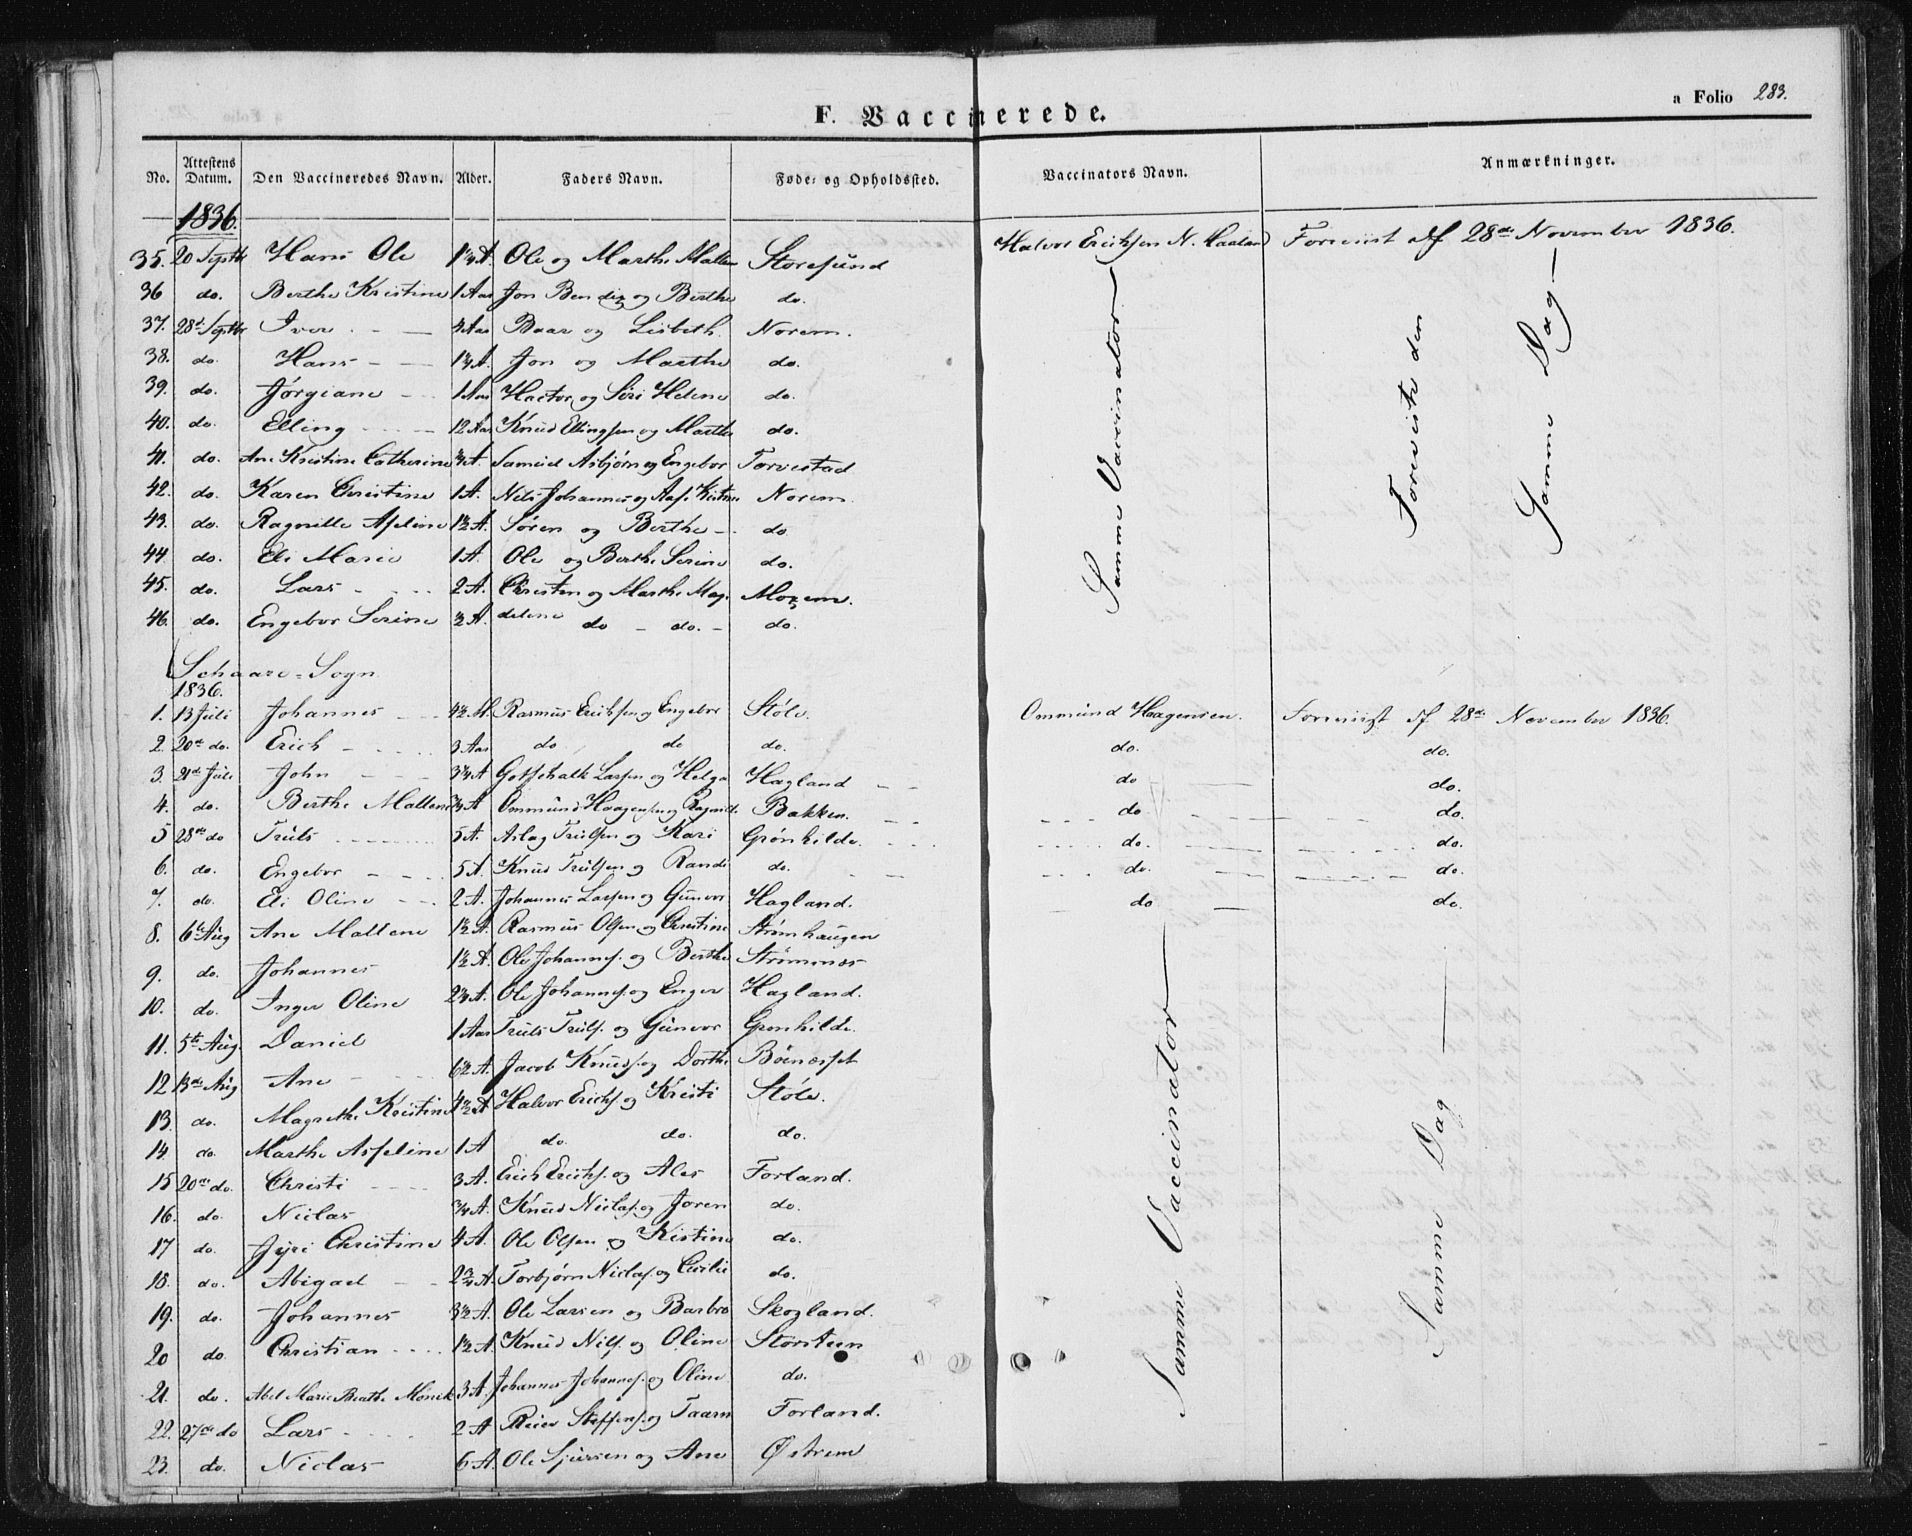 a Folio 283.
F. Vaccinerede.
No. Attestens Datum. Den Vaccineredes Navn. Alder. Faders Navn. Føde- og Opholdssted. Vaccinators Navn. Anmærkninger.
1836.
35. 20 Septbr Hans Ole 1¼ A. Ole og Marthe Malle Storesund Halvor Ericksen N. Haaland Foreviist d. 28de November 1836.
36 do. Berthe Kristine 1 Aar Jon Bendix og Berthe do. Samme Vaccinator Foreviste den Samme Dag
37. 28de Septbr Iver 4 Aar Baar og Lisbeth Norem.
38. do. Hans 1¼ A. Jon og Marthe do.
39. do. Jørgiane 1 Aar Hactor og Siri Helene do.
40. do. Elling 12 Aar Knud Ellingsen og Marthe do.
41. do. Ane Kristine Catherine ¾ A. Samuel Asbjørn og Engebor Torvestad
42. do. Karen Christine 1 A. Nels Johannes og Kistine Norem.
43. do. Ragnilde Aseline 1½ A. Søren og Berthe do
44. do. Eli Marie 1 A. Ole og Berthe Serine do.
45. do. Lars 2 A. Christen og Marthe Mag- Moxem.
46. do. Engebor Serine ½ A. delene do do. do.
Schaare-Sogn
1836.
1. 13 Juli Johannes 4½ M. Rasmus Ericksen og Engebor Støle. Ommund Haagensen. Foreviist d. 28de November 1836.
2. 20de do. Erich 3 Aar do do do. do. do.
3. 21de Juli John 3¼ A Gotschalk Larsen og Helga Hagland do do.
4. do. Berthe Mallene ¾ A Ommund Haagensen og Ragnild Bakken. do do.
5 28de do Truls 5 A. Aslag Trulsen og Kari Grønhilde. do. do.
6. do. Engebor 5 A. Knud Trulsen og Randi do. do. do.
7. do. Eli Oline 2 A. Johannes Larsen og Gunvor Hagland. do do.
8. 6te Aug Ane Mallene 1½ A. Rasmus Olsen og Christine Strømhaugen Samme Vaccinator Samme Dag
9. do. Johannes 1½ A. Ole Johannes. og Berthe Strømmes
10. do. Inger Oline 2¼ A. Ole Johannes. og Enger Hagland.
11. 5te Aug. Daniel 1 Aar Truls Truls. og Gunvor Grønhilde.
12 13de Aug Ane 6½ A. Jacob Knuds. og Dorthe
13. do. Magrethe Kristine 4½ A Halvor Ericks. og Kristi Støle.
14. do. Marthe Asseline 1 A do. do. do.
15 20de do. Christi 3 A. Erich Ericks. og Ales Forland.
16. do. Niclas ¾ A. Knud Niclas. og Joren do.
17 do. Jyri Christine 4 A. Ole Olsen og Kistine do.
18. do. Abigael 2¾ A. Torbjørn Niclas. og Cicilie do.
19. do. Johannes 3½ A. Ole Larsen og Barbro Skogland.
20 do. Christian 1½ A. Knud Nils. og Oline Storsteen
21. do. Abel Marie Brathe 3 A. Johannes Johannes. og Oline do.
22. 27de do Lars 2 A Reier Steffens. og Taarn Forland.
23. do. Niclas 6 A. Ole Sjursen og Ane Østrem